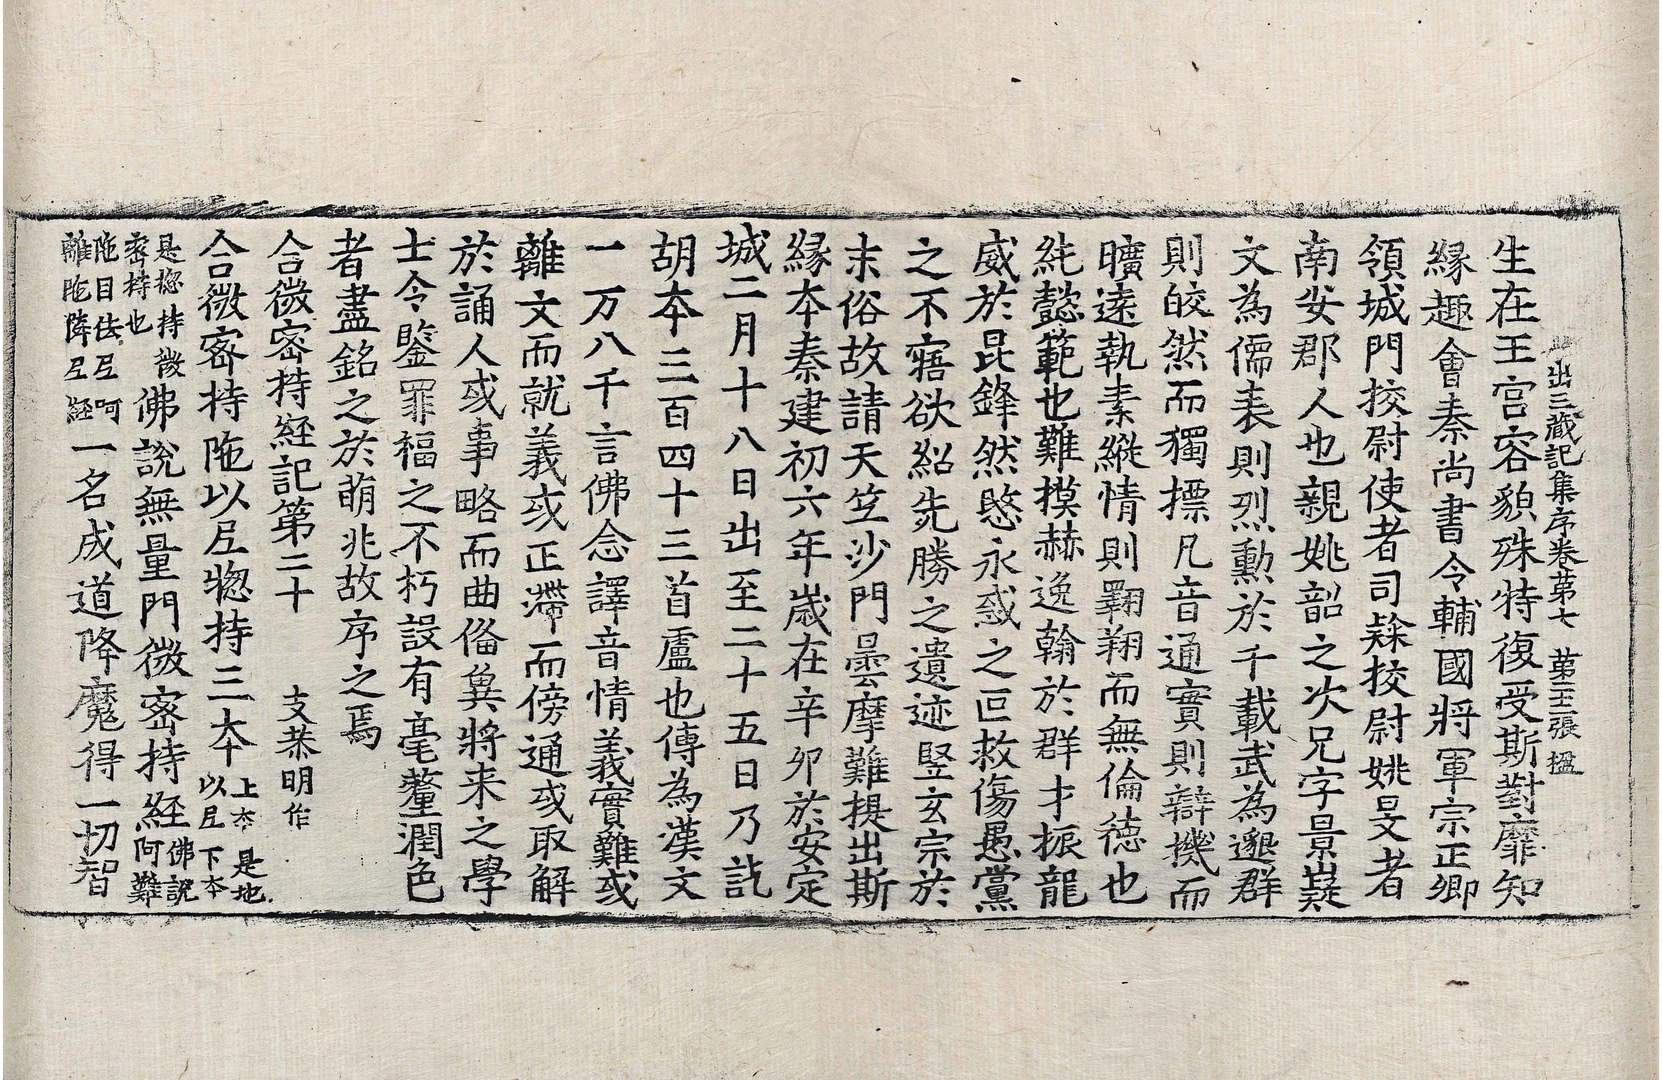 出三藏記集序卷第七　第二十張　楹
生在王宮容貌殊特復受斯對靡知
緣趣會秦尚書令輔國將軍宗正卿
領城門挍尉使者司𨽻挍尉姚旻者
南安郡人也親姚韶之次兄字景嶷
文為儒表則烈勳於千載武為邈群
則皎然而獨摽凡音通實則辯機而
曠遠執素縱情則翱翔而無倫德也
純懿範也難摸赫逸翰於群才振龍
威於昆鋒然愍永惑之叵救傷愚黨
之不寤欲紹先勝之遺迹竪玄宗於
末俗故請天竺沙門曇摩難提出斯
緣本秦建初六年歲在辛卯於安定
城二月十八日出至二十五日乃訖
胡本三百四十三首盧也傳為漢文
一万八千言佛念譯音情義實難或
離文而就義或正滯而傍通或取解
於誦人或事略而曲俻冀將來之學
士令鑒罪福之不朽設有毫𨤲潤色
者盡銘之於萌兆故序之焉
合微密持經記第二十　支恭明作
合微密持陁以𠯗揔持三本　上本是地
以𠯗下本
是揔持微
密持也　佛說無量門微密持經　佛說
阿難
陁目佉𠯗呵
離陁隣𠯗經　一名成道降魔得一切智